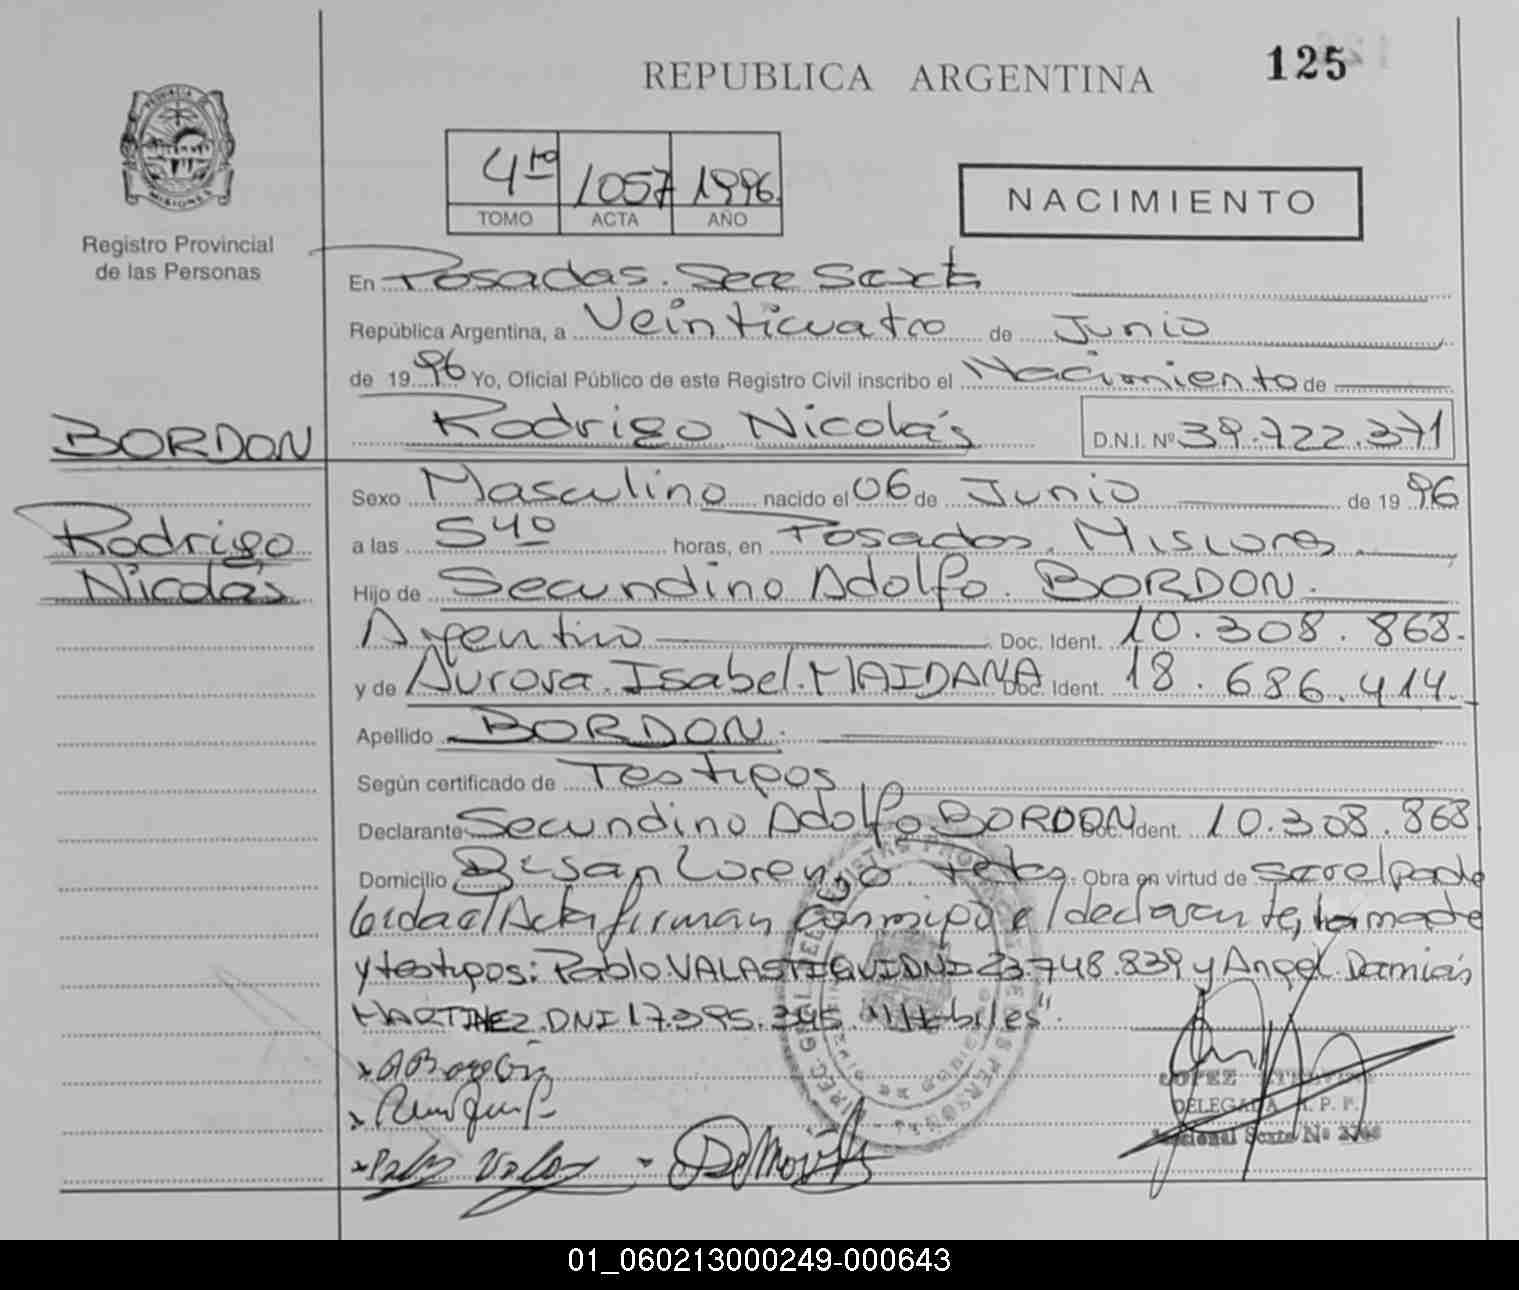 125
REPUBLICA ARGENTINA
PROVINCIA DE
MISIONES
Registro Provincial
de las Personas
4to 1057 1996.
TOMO ACTA AÑO
NACIMIENTO
En Posadas. Secc Sexta
República Argentina, a Veinticuatro de Junio
de 1996 Yo, Oficial Público de este Registro Civil inscribo el Nacimiento de
BORDON
Rodrigo Nicolás D.N.I. Nº 39.722.371
Sexo Masculino nacido el 06 de Junio de 1996
Rodrigo
Nicolás
a las 5 40 horas, en Posadas. Misiones.
Hijo de Secundino Adolfo. BORDON.
Argentino Doc. Ident. 10.308.868.
y de Aurora. Isabel. MAIDANA Doc. Ident. 18.686.414.
Apellido BORDON.
Según certificado de Testigos
Declarante Secundino Adolfo BORDON Doc. Ident. 10.308.868
Domicilio San Lorenzo Obra en virtud de ser el padre
Leida el Acta firman conmigo el declarante, la madre
y testigos: Pablo VALASTIQUI DNI 23.748.839 y Angel Damián
MARTINEZ DNI 17.395.345 "Hábiles".
LOPEZ
DELEGADA R.P.P.
Seccional Sexta Nº
01_060213000249-000643